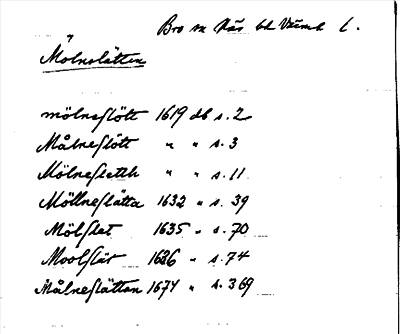 Bro sn Näs hd Värml l.
Mölneslätten
mölneslött 1619 db s. 2
Målneslött " " s. 3
Mölnesletth " " s. 11
Möllneslätta 1632 " s. 39
Mölslet 1635 " s. 70
Moolslät 1636 " s. 74
Målneslättan 1674 " s. 369